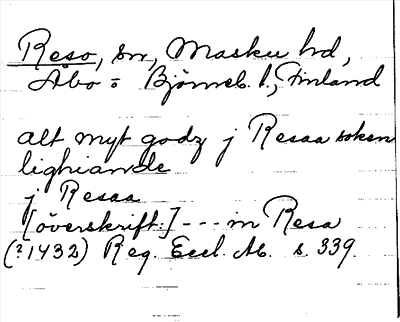 Reso, sn, Masku hd,
Åbo = Björneb. l., Finland
alt myt godz j Resaa soken
lighiande
j Resaa
[överskrift:] --- m Resa
(?1432) Reg. Eccl. Ab. s. 339.